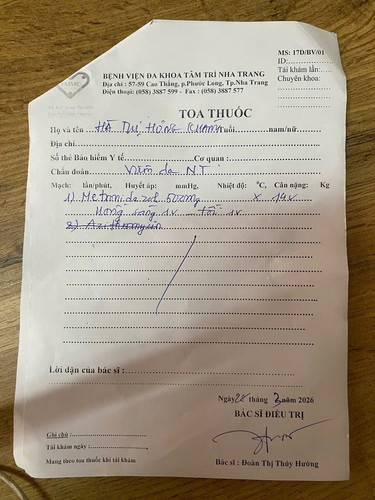 MS: 17D/BV/01
ID:
Tái khám lần:
Chuyên khoa:
MMC
BỆNH VIỆN ĐA KHOA TÂM TRÍ NHA TRANG
Địa chỉ : 57-59 Cao Thắng, p.Phước Long, Tp.Nha Trang
Điện thoại: (058) 3887 599 - Fax : (058) 3887 577
TOA THUỐC
Họ và tên HÀ THỊ HỒNG tuổi nam/nữ
Địa chỉ
Số thẻ Bảo hiểm Y tế Cơ quan :
Chẩn đoán Viêm da NT
Mạch: lần/phút, Huyết áp: mmHg, Nhiệt độ: °C, Cân nặng: Kg
1) Metronidazol 500mg x 14v
Uống sáng 1v - tối 1v
2) Azithromycin
Lời dặn của bác sĩ :
Ngày tháng 3 năm 2026
BÁC SĨ ĐIỀU TRỊ
Ghi chú :
Tái khám ngày :
Mang theo toa thuốc khi tái khám
Bác sĩ : Đoàn Thị Thúy Hường